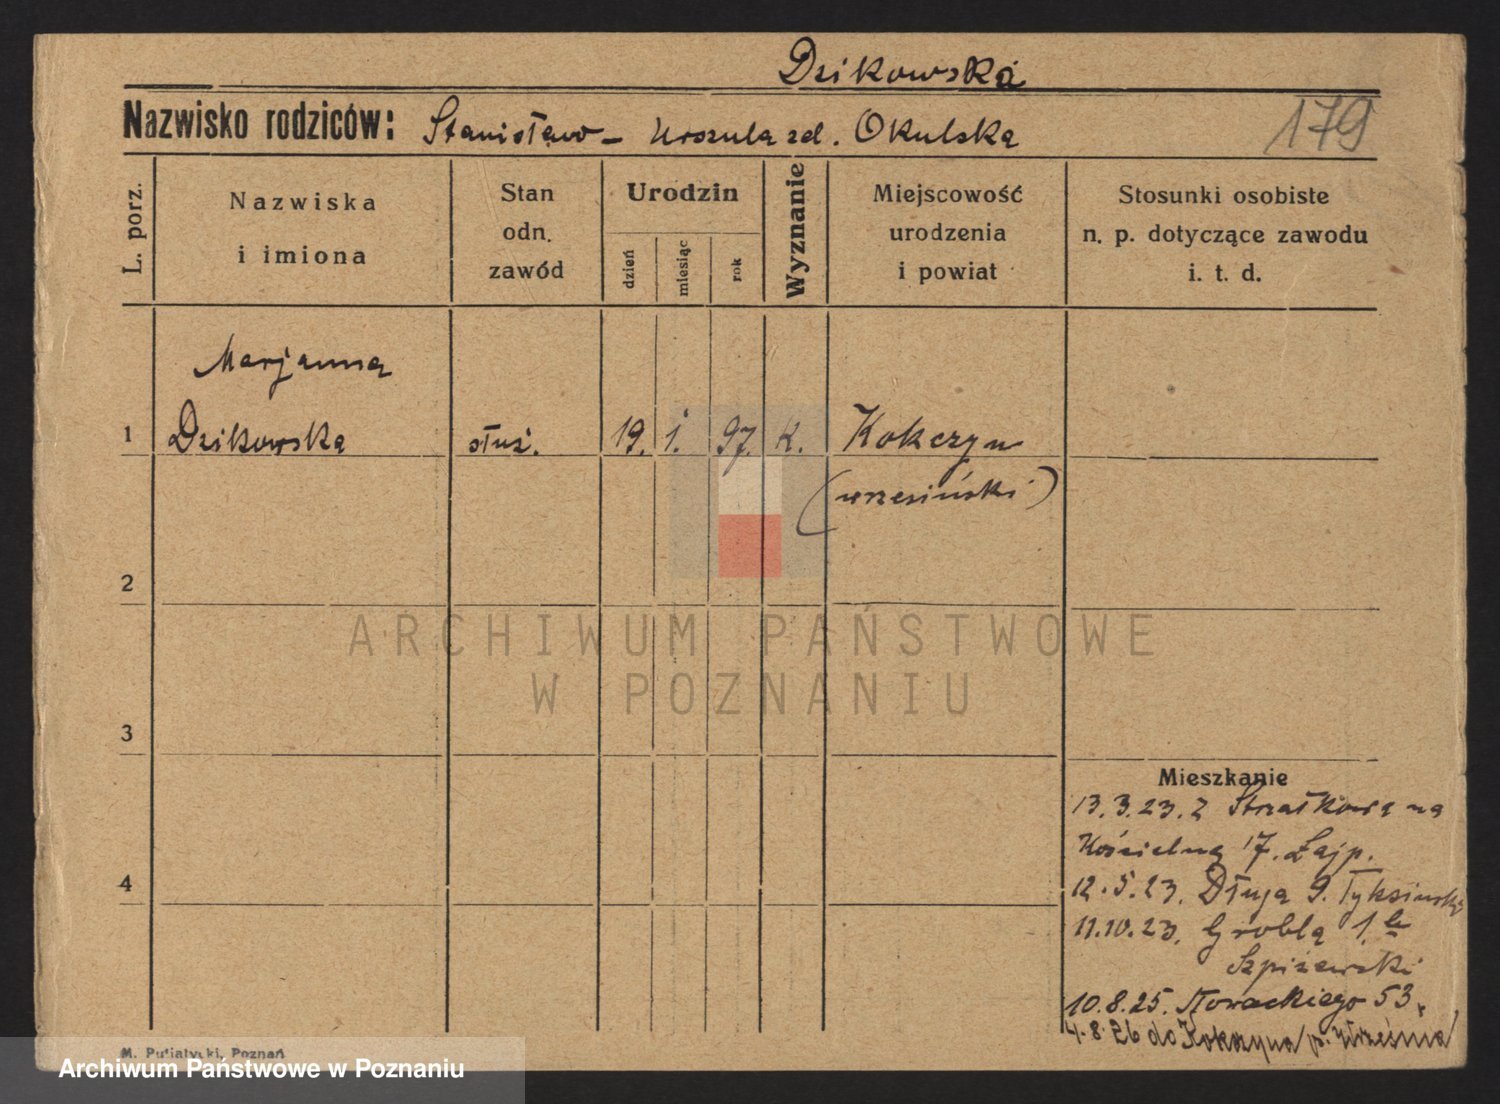 Dzikowska
Nazwisko rodziców: Stanisław - Urszula zd. Okulska
179
L. porz.
Nazwiska i imiona
Stan odn. zawód
Urodzin
dzień
miesiąc
rok
Wyznanie
Miejscowość urodzenia i powiat
Stosunki osobiste n. p. dotyczące zawodu i. t. d.
Marjanna
1 Dzikowska służ. 19. 1. 97. K. Kokczyn
(wrzesiński)
2
ARCHIWUM PAŃSTWOWE
W POZNANIU
3
Mieszkanie
13.3.23. Z Strzałkowa na
Kościelna 17. Zajp.
4
12.5.23. Długa 9.
11.10.23. Grobla 1.
Szpiżewski
10.8.25. Słowackiego 53.
4.8.26 do Kokczyna p. Września
M. Putiatycki, Poznań
Archiwum Państwowe w Poznaniu